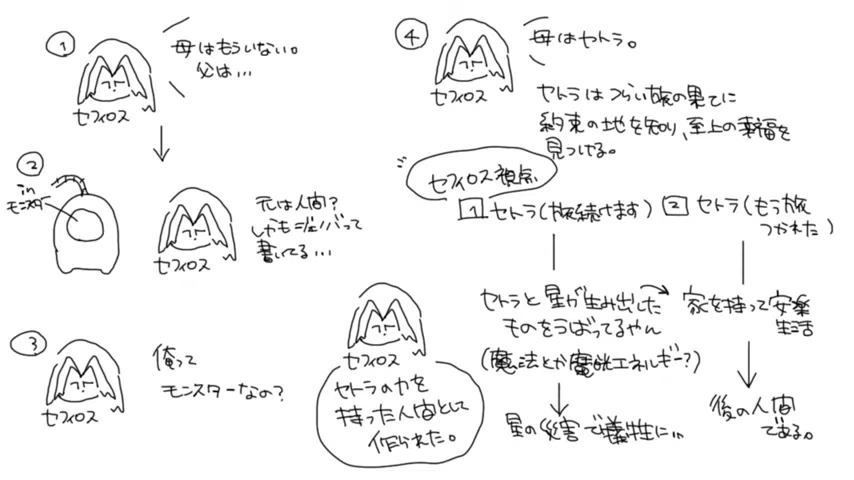 ①
母はもういない。
父は…
セフィロス
②
in
モンスター
元は人間?
しかもジェノバって
書いてる…
セフィロス
③
俺って
モンスターなの?
セフィロス
セフィロス
セトラの力を
持った人間として
作られた。
④
母はセトラ。
セフィロス
セトラはつらい旅の果てに
約束の地を知り、至上の幸福を
見つける。
セフィロス視点
1 セトラ(旅続けます)
セトラと星が生み出した
ものをうばってるやん
(魔法とか魔晄エネルギー?)
星の災害で犠牲に…
2 セトラ(もう旅
つかれた)
家を持って安楽
生活
後の人間
である。